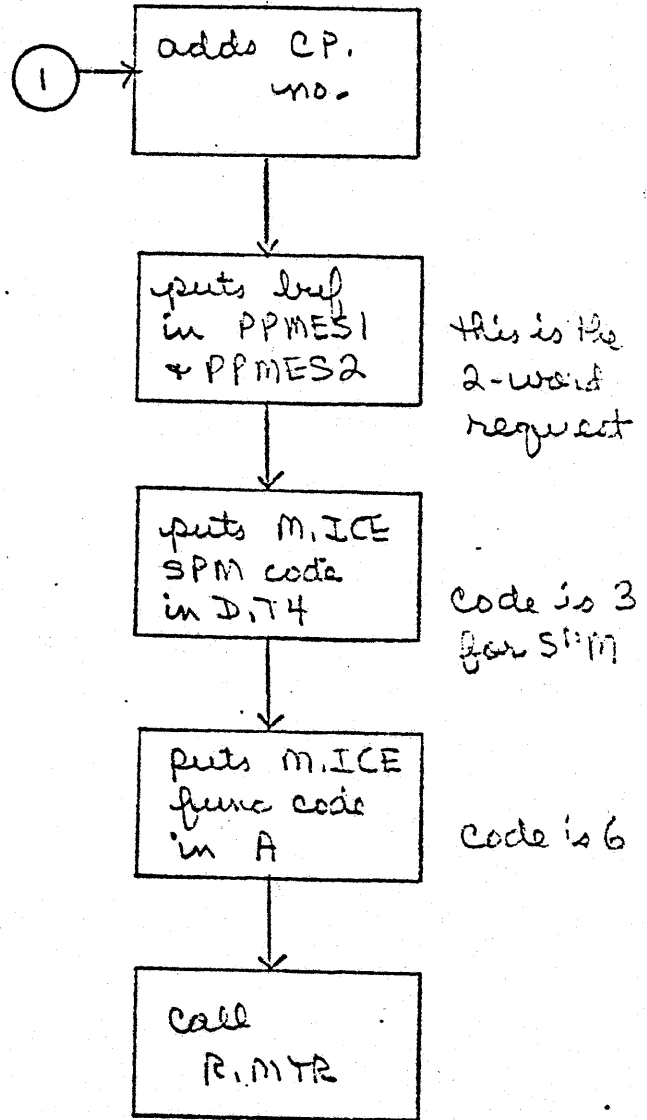 1
adds CP.
no.
puts buf
in PPMES1
& PPMES2
this is the
2-word
request
puts M.ICE
SPM code
in D.T4
code is 3
for SPM
puts M.ICE
func code
in A
code is 6
call
R.MTR